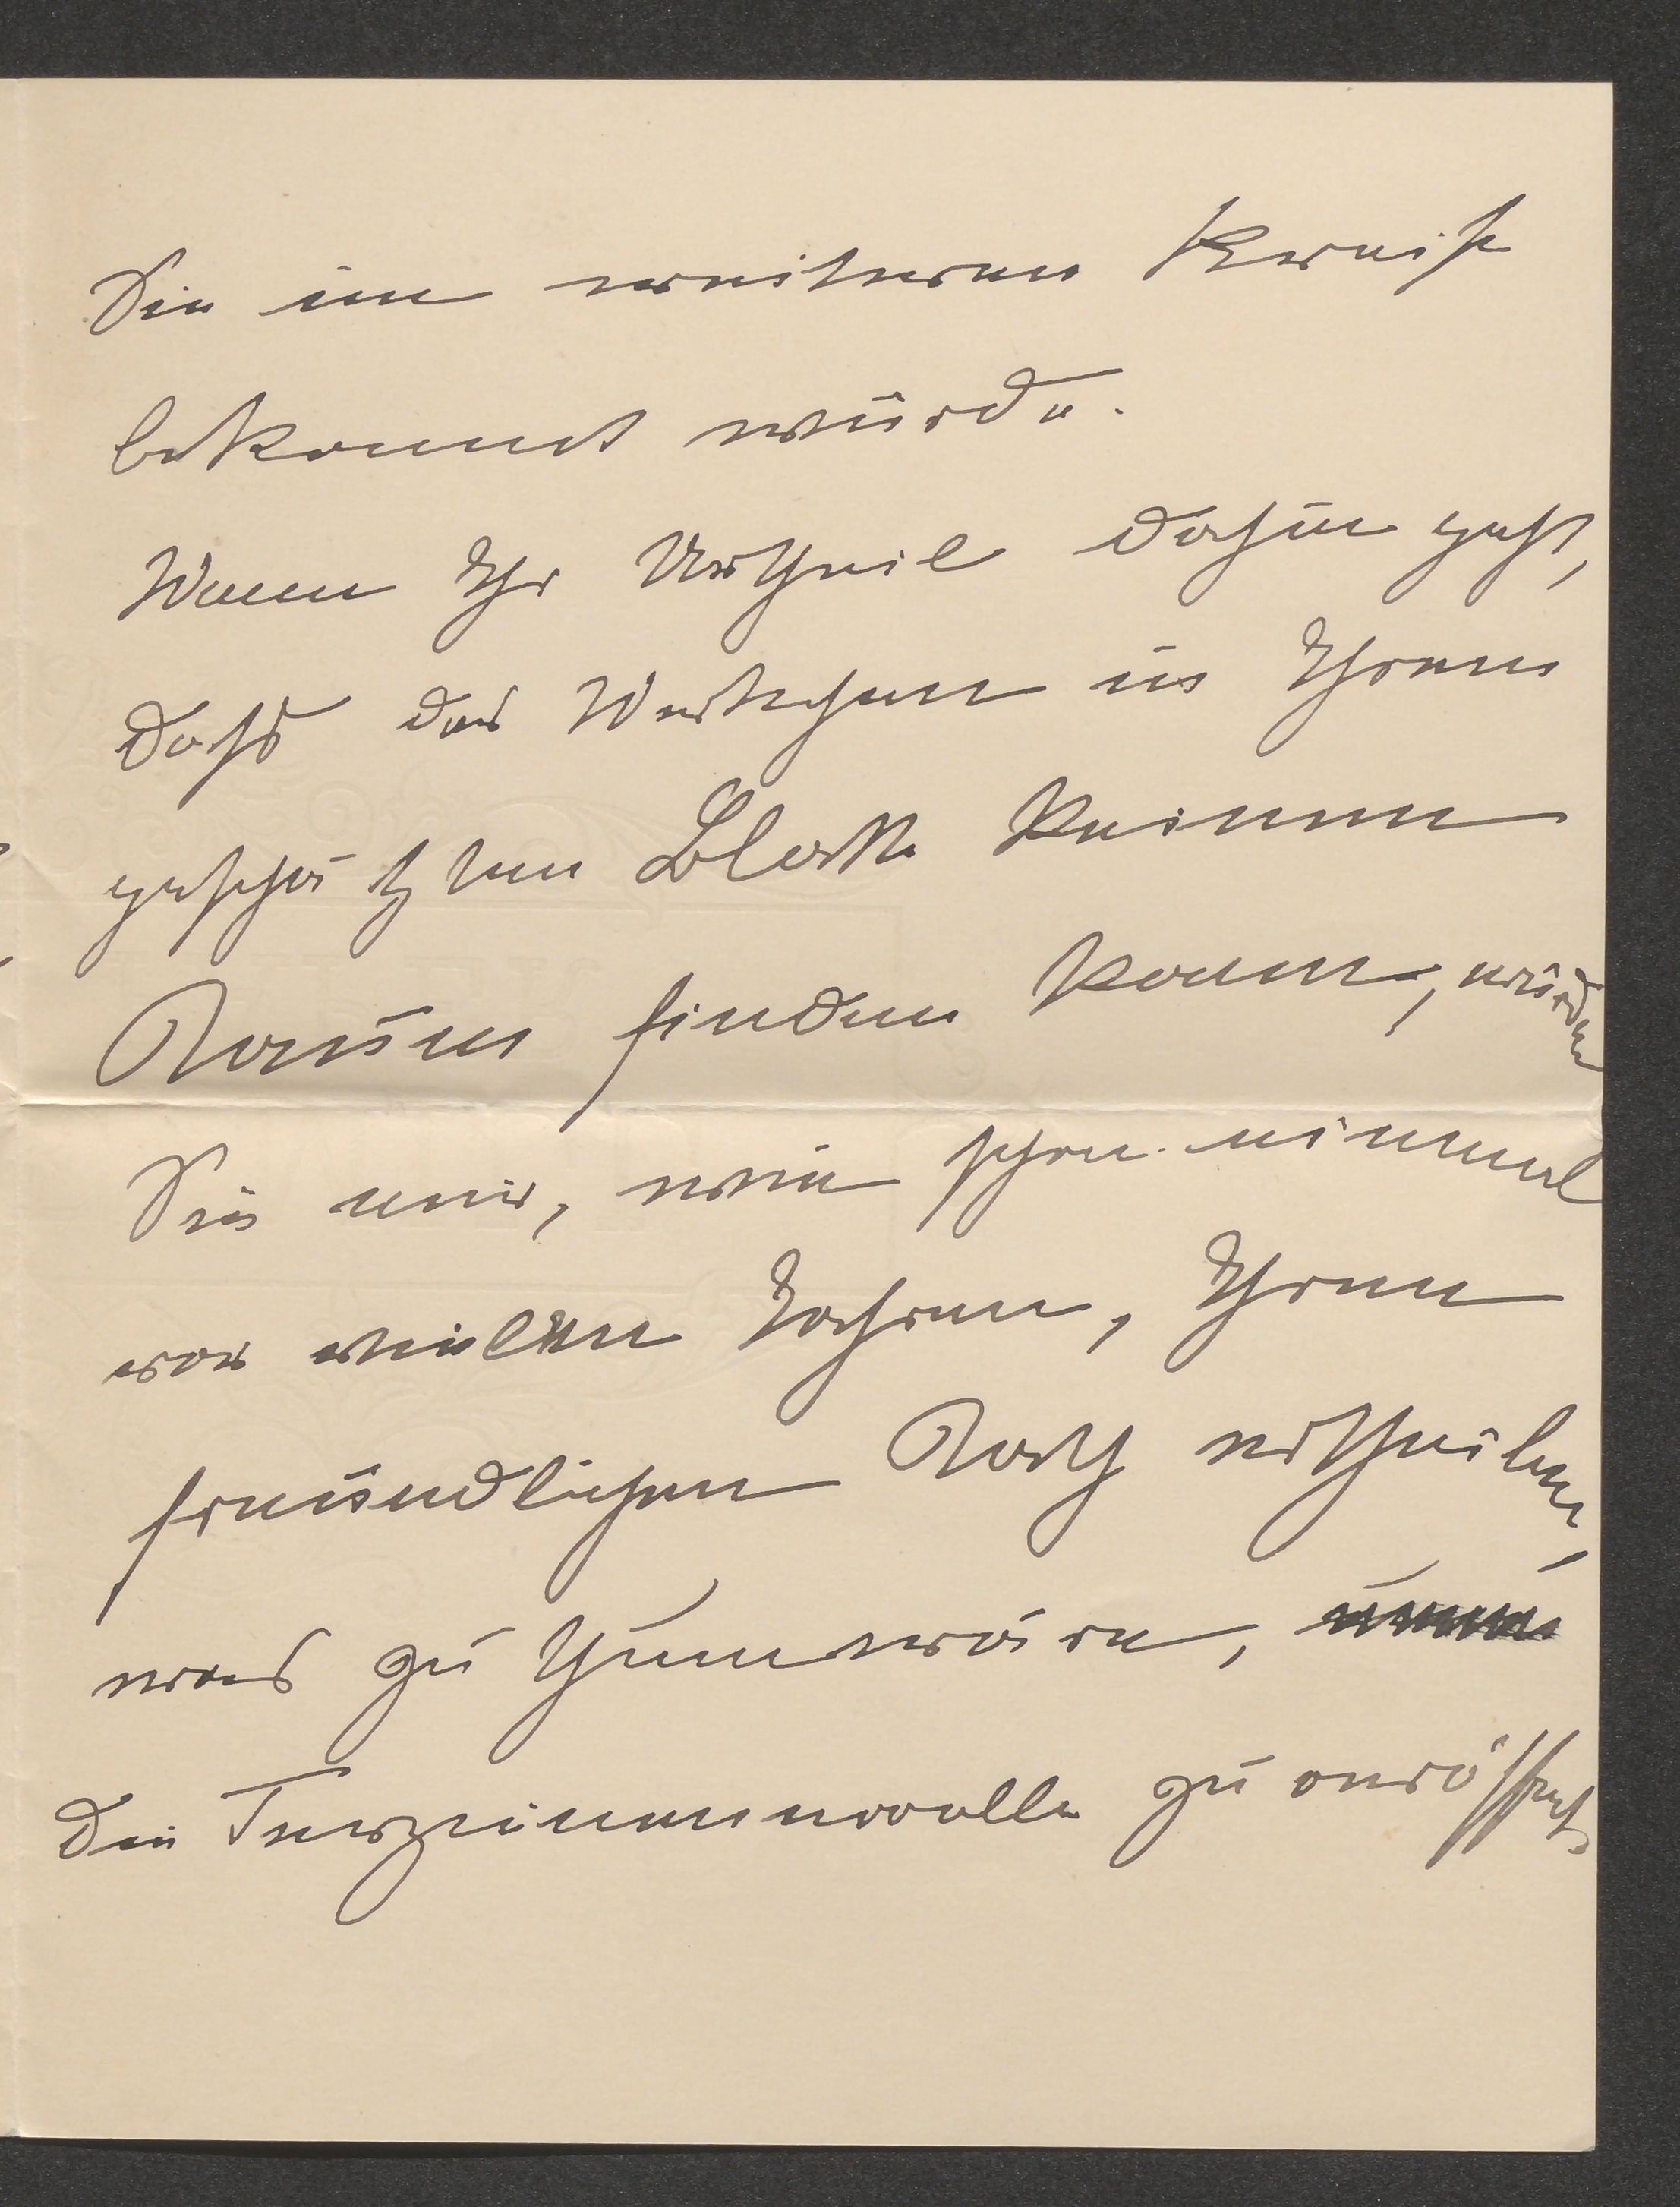 Sie im weiteren Kreise
bekannt würde.
Wenn Ihr Urtheil dahin geht,
daß das Werkchen in Ihrem
geschätzten Blatte keinen
Raum finden kann, würden
Sie mir, wie schon einmal
vor vielen Jahren, Ihren
freundlichen Rath ertheilen,
was zu thun wäre,
die Terzinennovelle zu veröffentl.